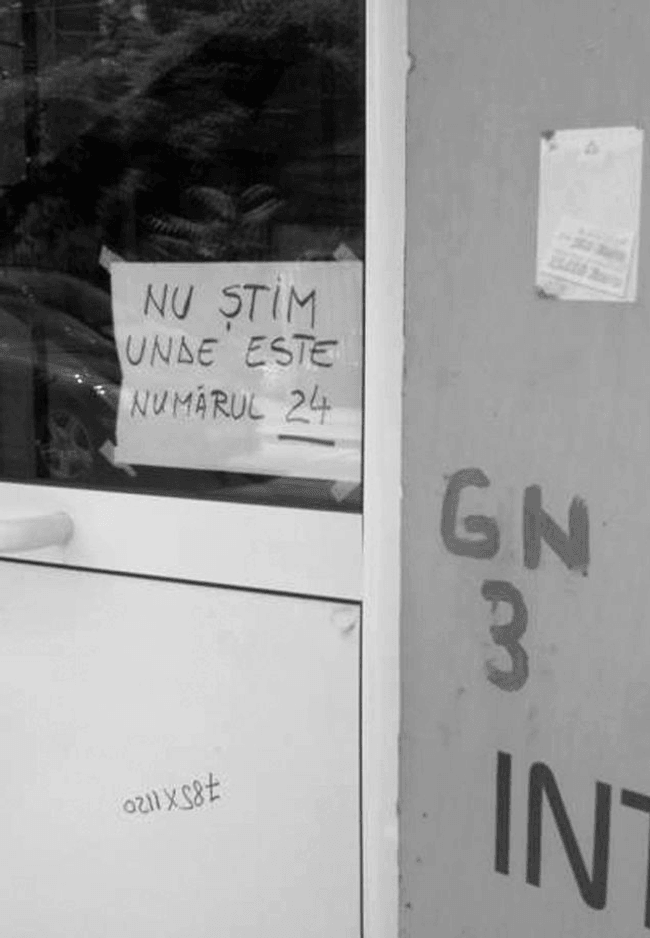 NU ȘTIM
UNDE ESTE
NUMĂRUL 24
GN
3
INT
785X1120